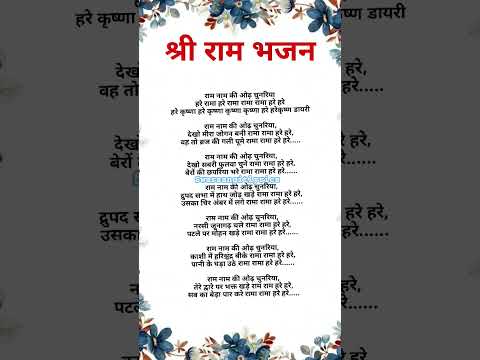 हरे कृष्णा ह
ष्ण डायरी
श्री राम भजन
देखो म
वह तो
हरे हरे,
हरे.....
राम नाम की ओढ़ चुनरिया
हरे रामा हरे रामा रामा रामा हरे हरे
हरे कृष्णा हरे कृष्णा कृष्णा कृष्णा हरे हरेकृष्ण डायरी
राम नाम की ओढ़ चुनरिया,
देखो मीरा जोगन बनी रामा रामा हरे हरे,
वह तो ब्रज की गली घूमे रामा रामा हरे हरे.....
राम नाम की ओढ़ चुनरिया,
देखो सबरी फुलवा चुने रामा रामा हरे हरे,
बेरों की छपरिया भरे रामा रामा हरे हरे......
राम नाम की ओढ़ चुनरिया,
द्रुपद सभा में हाथ जोड़ खड़े रामा रामा हरे हरे,
उसका चिर अंबर में लगे रामा रामा हरे हरे......
राम नाम की ओढ़ चुनरिया,
नरसी जूनागढ़ चले रामा रामा हरे हरे,
पटले पर मोहन खड़े रामा रामा हरे हरे......
राम नाम की ओढ़ चुनरिया,
काशी में हरिश्चंद्र बीके रामा रामा हरे हरे,
पानी के घड़ा उठे रामा रामा हरे हरे......
राम नाम की ओढ़ चुनरिया,
तेरे द्वारे पर भक्त खड़े राम राम हरे हरे,
सब का बेड़ा पार करे रामा रामा हरे हरे.....
द्रुपद
उसका
हरे हरे,
पटले